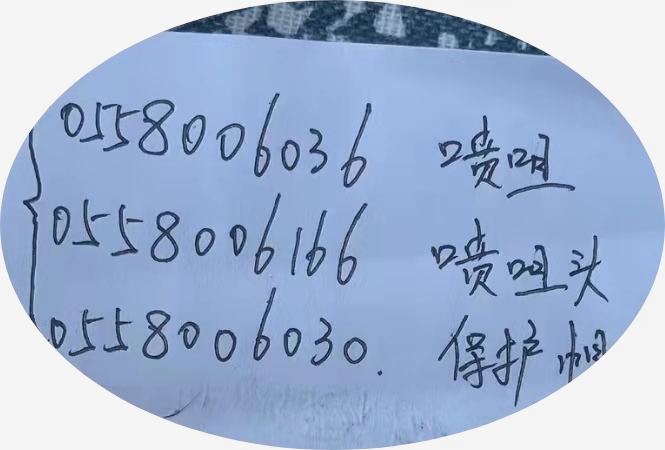 0558006036 喷咀
0558006166 喷咀头
0558006030. 保护帽